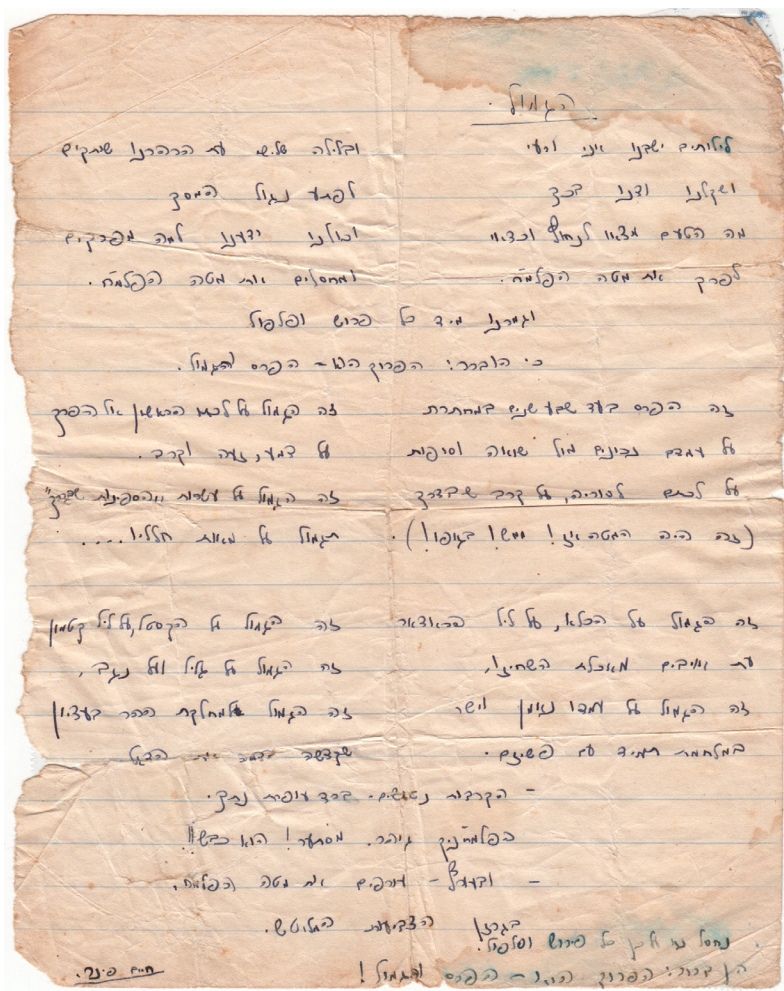 הגמול.
לילותים ישבנו אני ורעי
ושקלנו ודנו בכך
מה הטעם מצאו לנחוץ וכדאי
לפרק את מטה הפלמ"ח.
ובלילה שלישי עת הרהרנו שותקים
לפתע נגול המסך
וכולנו ידענו למה מפרקים
ומחסלים את מטה הפלמ"ח.
וגמרנו מיד כל פרוש ופלפול
כי הוברר: הפרוק הוא – הפרס והגמול.
זה הפרס בעד שבע שנים במחתרת
על עמדם נכונים מול שואה וסופות
על לכתם לסוריה, על קרב שבדרך
היה המטה אז! ממש! בגופו!).
זה הגמול על לכתו הראשון אל הפרך
על דמע, זעה וקרב.
זה הגמול על עטרות "והספינות שבדרך"
הגמול על מאות חלליו....
זה הגמול על הכלא, על ליל
עת אויבים מאכלת השחיזו,
זה הגמול על עמדו נאמן וישר
במלחמת תמיד עם פשיזם.
זה הגמול על הקסטל, על ליל קטמון
זה הגמול על גליל ועל נגב,
זה הגמול למחלקת ההר בעציון
שקדשה בדמה את הדגל
– הקרבות נטושים. ברד עופרת נתך.
הפלמ"חניק מסתער! הוא כבש!!
– ובעורף – עורפים את מטה הפלמ"ח,
בגרזן הצביעות המלוטש.
נחסל נא כל פירוש ופלפול.
הן ברור: הפרוק הוא – הפרס והגמול!
חיים פינר.